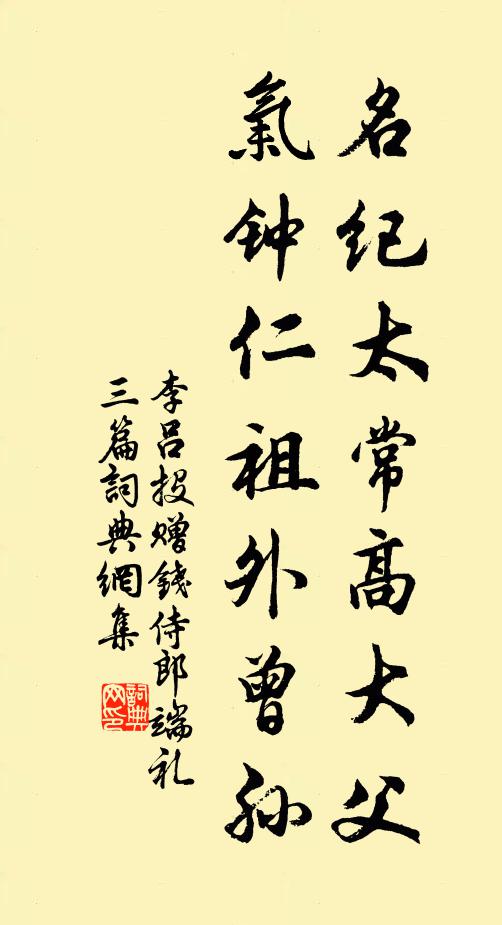 名纪太常高大父
氣钟仁祖外曾孙
李吕投赠錢侍郎端礼
三篇詞典網集
詞典网印